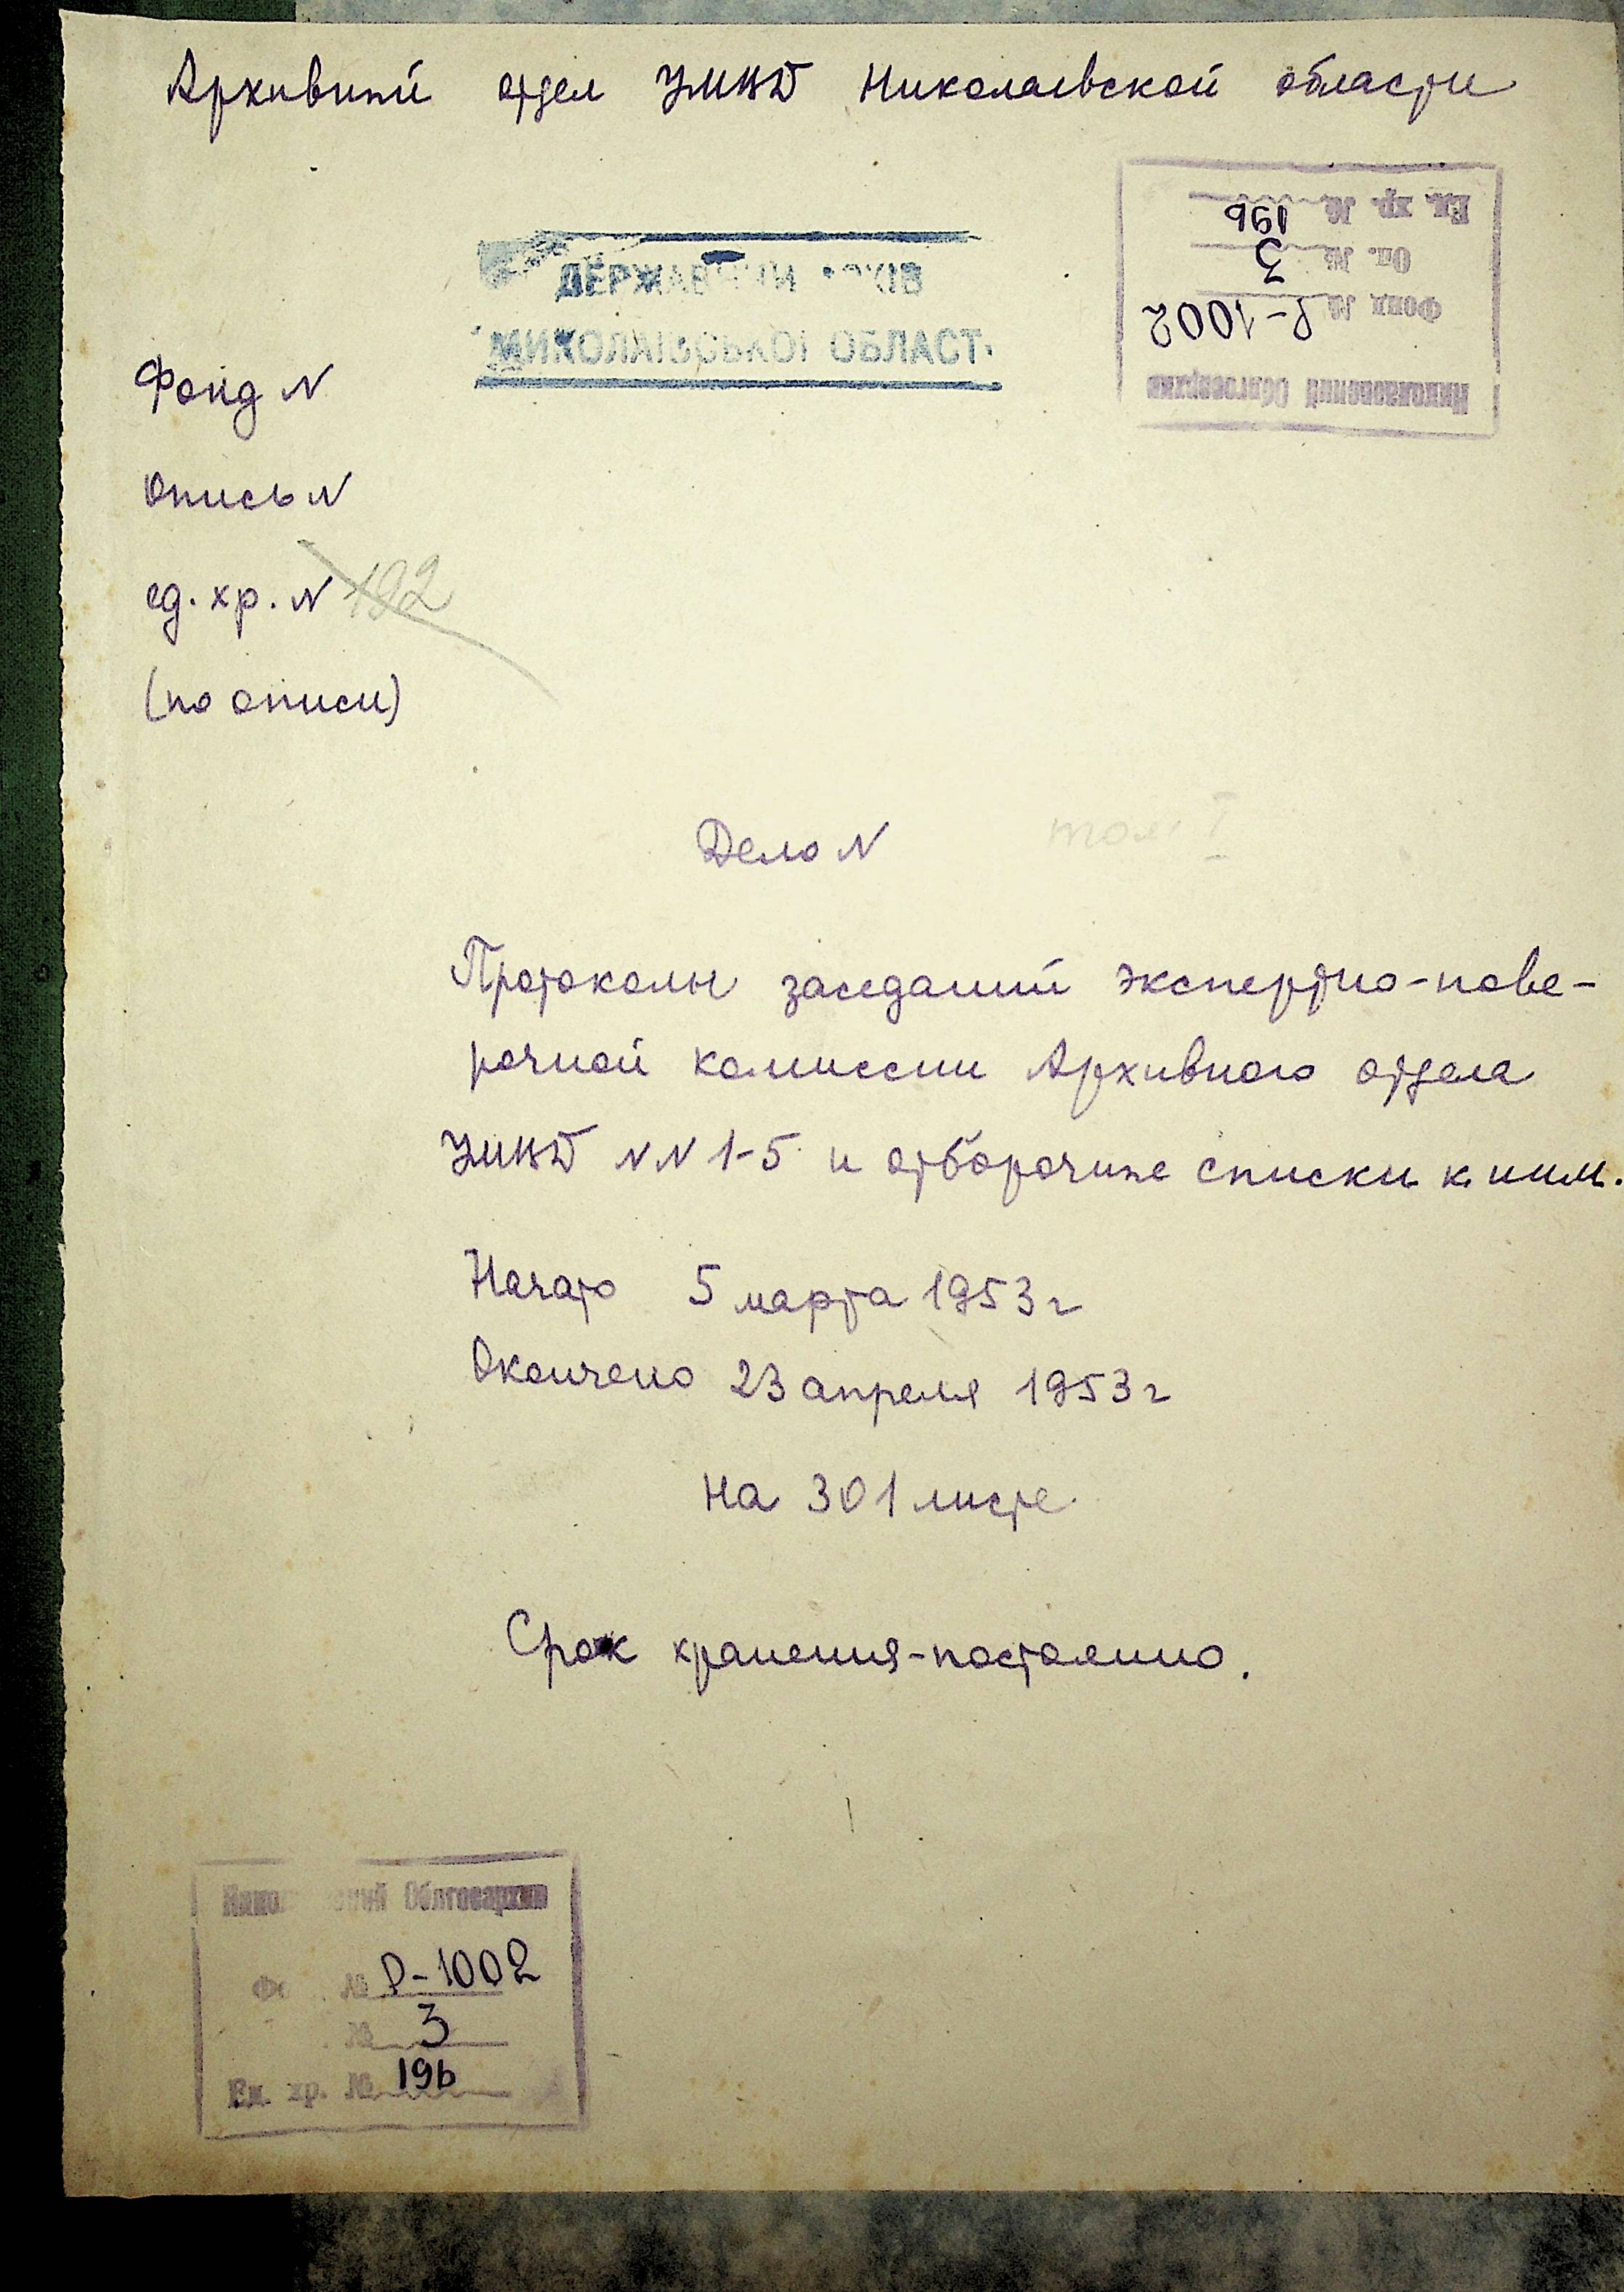 Архивный отдел УМВД Николаевской области
ДЕРЖАВНИЙ АРХІВ
МИКОЛАЇВСЬКОЇ ОБЛАСТІ
Николаевский Облгосархив
Фонд № Р-1002
Оп. № 3
Ед. хр. № 196
Фонд N
Опись N
ед. хр. N 192
(по описи)
Дело N
том I
Протоколы заседаний экспертно-пове-
рочной комиссии Архивного отдела
УМВД NN 1-5 и отборочные списки к ним.
Начато 5 марта 1953 г
Окончено 23 апреля 1953 г
На 301 листе
Срок хранения-постоянно.
Николаевский Облгосархив
Фонд № Р-1002
№ 3
Ед. хр. № 196